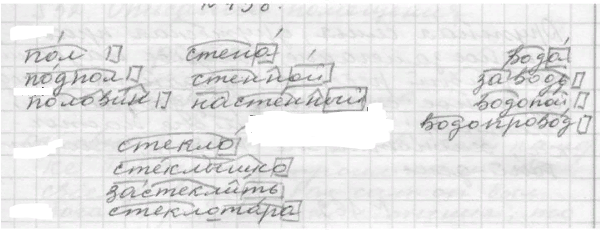 пол стена вода
подпол стенной завод
половик настенный водопой
водопровод
стекло
стёклышко
застеклить
стеклотара